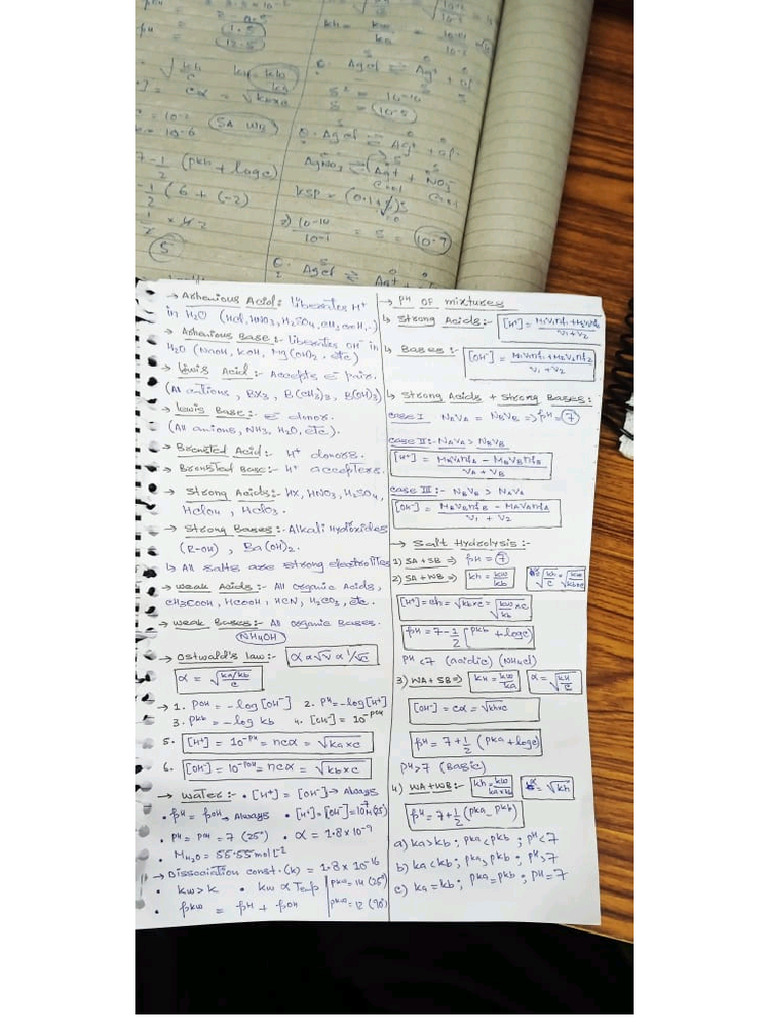 0.5
1.5
12.5
kh = kw
ka
S
Q. AgCl ⇌ Ag⁺ +
S² = 10⁻¹⁰
S = 10⁻⁵
SA WB
= cα = √kh×c
= 10⁻²
= 10⁻⁶
7 - 1/2 (pkb + logc)
- 1/2 (6 + (-2)
5
Q. AgCl ⇌ Ag⁺ + Cl⁻
AgNO₃ ⇌ Ag⁺ + NO₃⁻
ksp = (0.1+S) S
2) 10⁻¹⁰/10⁻¹ = S = 10⁻⁹
Q. AgCl ⇌ Ag⁺ +
→ Arhenious Acid: liberates H⁺
in H₂O (Hcl, HNO₃, H₂SO₄, CH₃COOH,..)
→ Arhenious Base:- liberates OH⁻ in
H₂O (NaOH, KOH, Mg(OH)₂, etc)
→ Lewis Acid:- Accepts e⁻ pair.
(All cations, BX₃, B(CH₃)₃, B(OH)₃)
→ Lewis Base:- e⁻ donor.
(All anions, NH₃, H₂O, etc).
→ Bronsted Acid:- H⁺ donors.
→ Bronsted Base:- H⁺ accepters.
→ Strong Acids:- HX, HNO₃, H₂SO₄,
HClO₄, HClO₃.
→ Strong Bases:- Alkali Hydroxides
(R-OH), Ba(OH)₂.
↳ All salts are strong electrolites
→ weak Acids:- All organic Acids,
CH₃COOH, HCOOH, HCN, H₂CO₃, etc.
→ weak Bases:- All organic Bases.
NH₄OH
→ Ostwald's Law:- α ∝ √V ∝ 1/√c
α = √(ka/kb / c)
→ 1. POH = -log[OH⁻] 2. PH = -log[H⁺]
3. pkb = -log kb 4. [OH⁻] = 10^-POH
5. [H⁺] = 10^-PH = ncα = √ka×c
6. [OH⁻] = 10^-POH = ncα = √kb×c
→ water:- • [H⁺] = [OH⁻] → Always
• PH = POH → Always • [H⁺] = [OH⁻] = 10⁻⁷M (25)
• PH = POH = 7 (25°) • α = 1.8×10⁻⁹
• M H₂O = 55.55 mol L⁻¹
→ Dissociation const. (k) = 1.8×10⁻¹⁶
• kw > k • kw ∝ Temp | pkw = 14 (25°)
• pkw = PH + POH | pkw = 12 (90°)
→ PH OF mixtures
↳ Strong Acids:- [H⁺] = M₁V₁nf₁ + M₂V₂nf₂ / V₁+V₂
↳ Bases:- [OH⁻] = M₁V₁nf₁ + M₂V₂nf₂ / V₁+V₂
↳ Strong Acids + Strong Bases:
Case I NAVA = NBVB => PH = 7
Case II:- NAVA > NBVB
[H⁺] = MAVAnfA - MBVBnfB / VA+VB
Case III:- NBVB > NAVA
[OH⁻] = MBVBnfB - MAVAnfA / V₁+V₂
→ Salt Hydrolysis:-
1) SA+SB => PH = 7
2) SA+WB => kh = kw/kb √(kh/c) = √(kw/kb×c)
[H⁺] = ch = √kh×c = √(kw/kb ×c)
PH = 7 - 1/2 [pkb + logc]
PH < 7 (acidic) (NH₄Cl)
3) WA+SB => kh = kw/ka α = √(kh/c)
[OH⁻] = cα = √kh×c
PH = 7 + 1/2 (pka + logc)
PH > 7 (Basic)
4) WA+WB:- kh = kw/ka×kb α = √kh
PH = 7 + 1/2 (pka - pkb)
a) ka > kb ; pka < pkb ; PH < 7
b) ka < kb ; pka > pkb ; PH > 7
c) ka = kb ; pka = pkb ; PH = 7